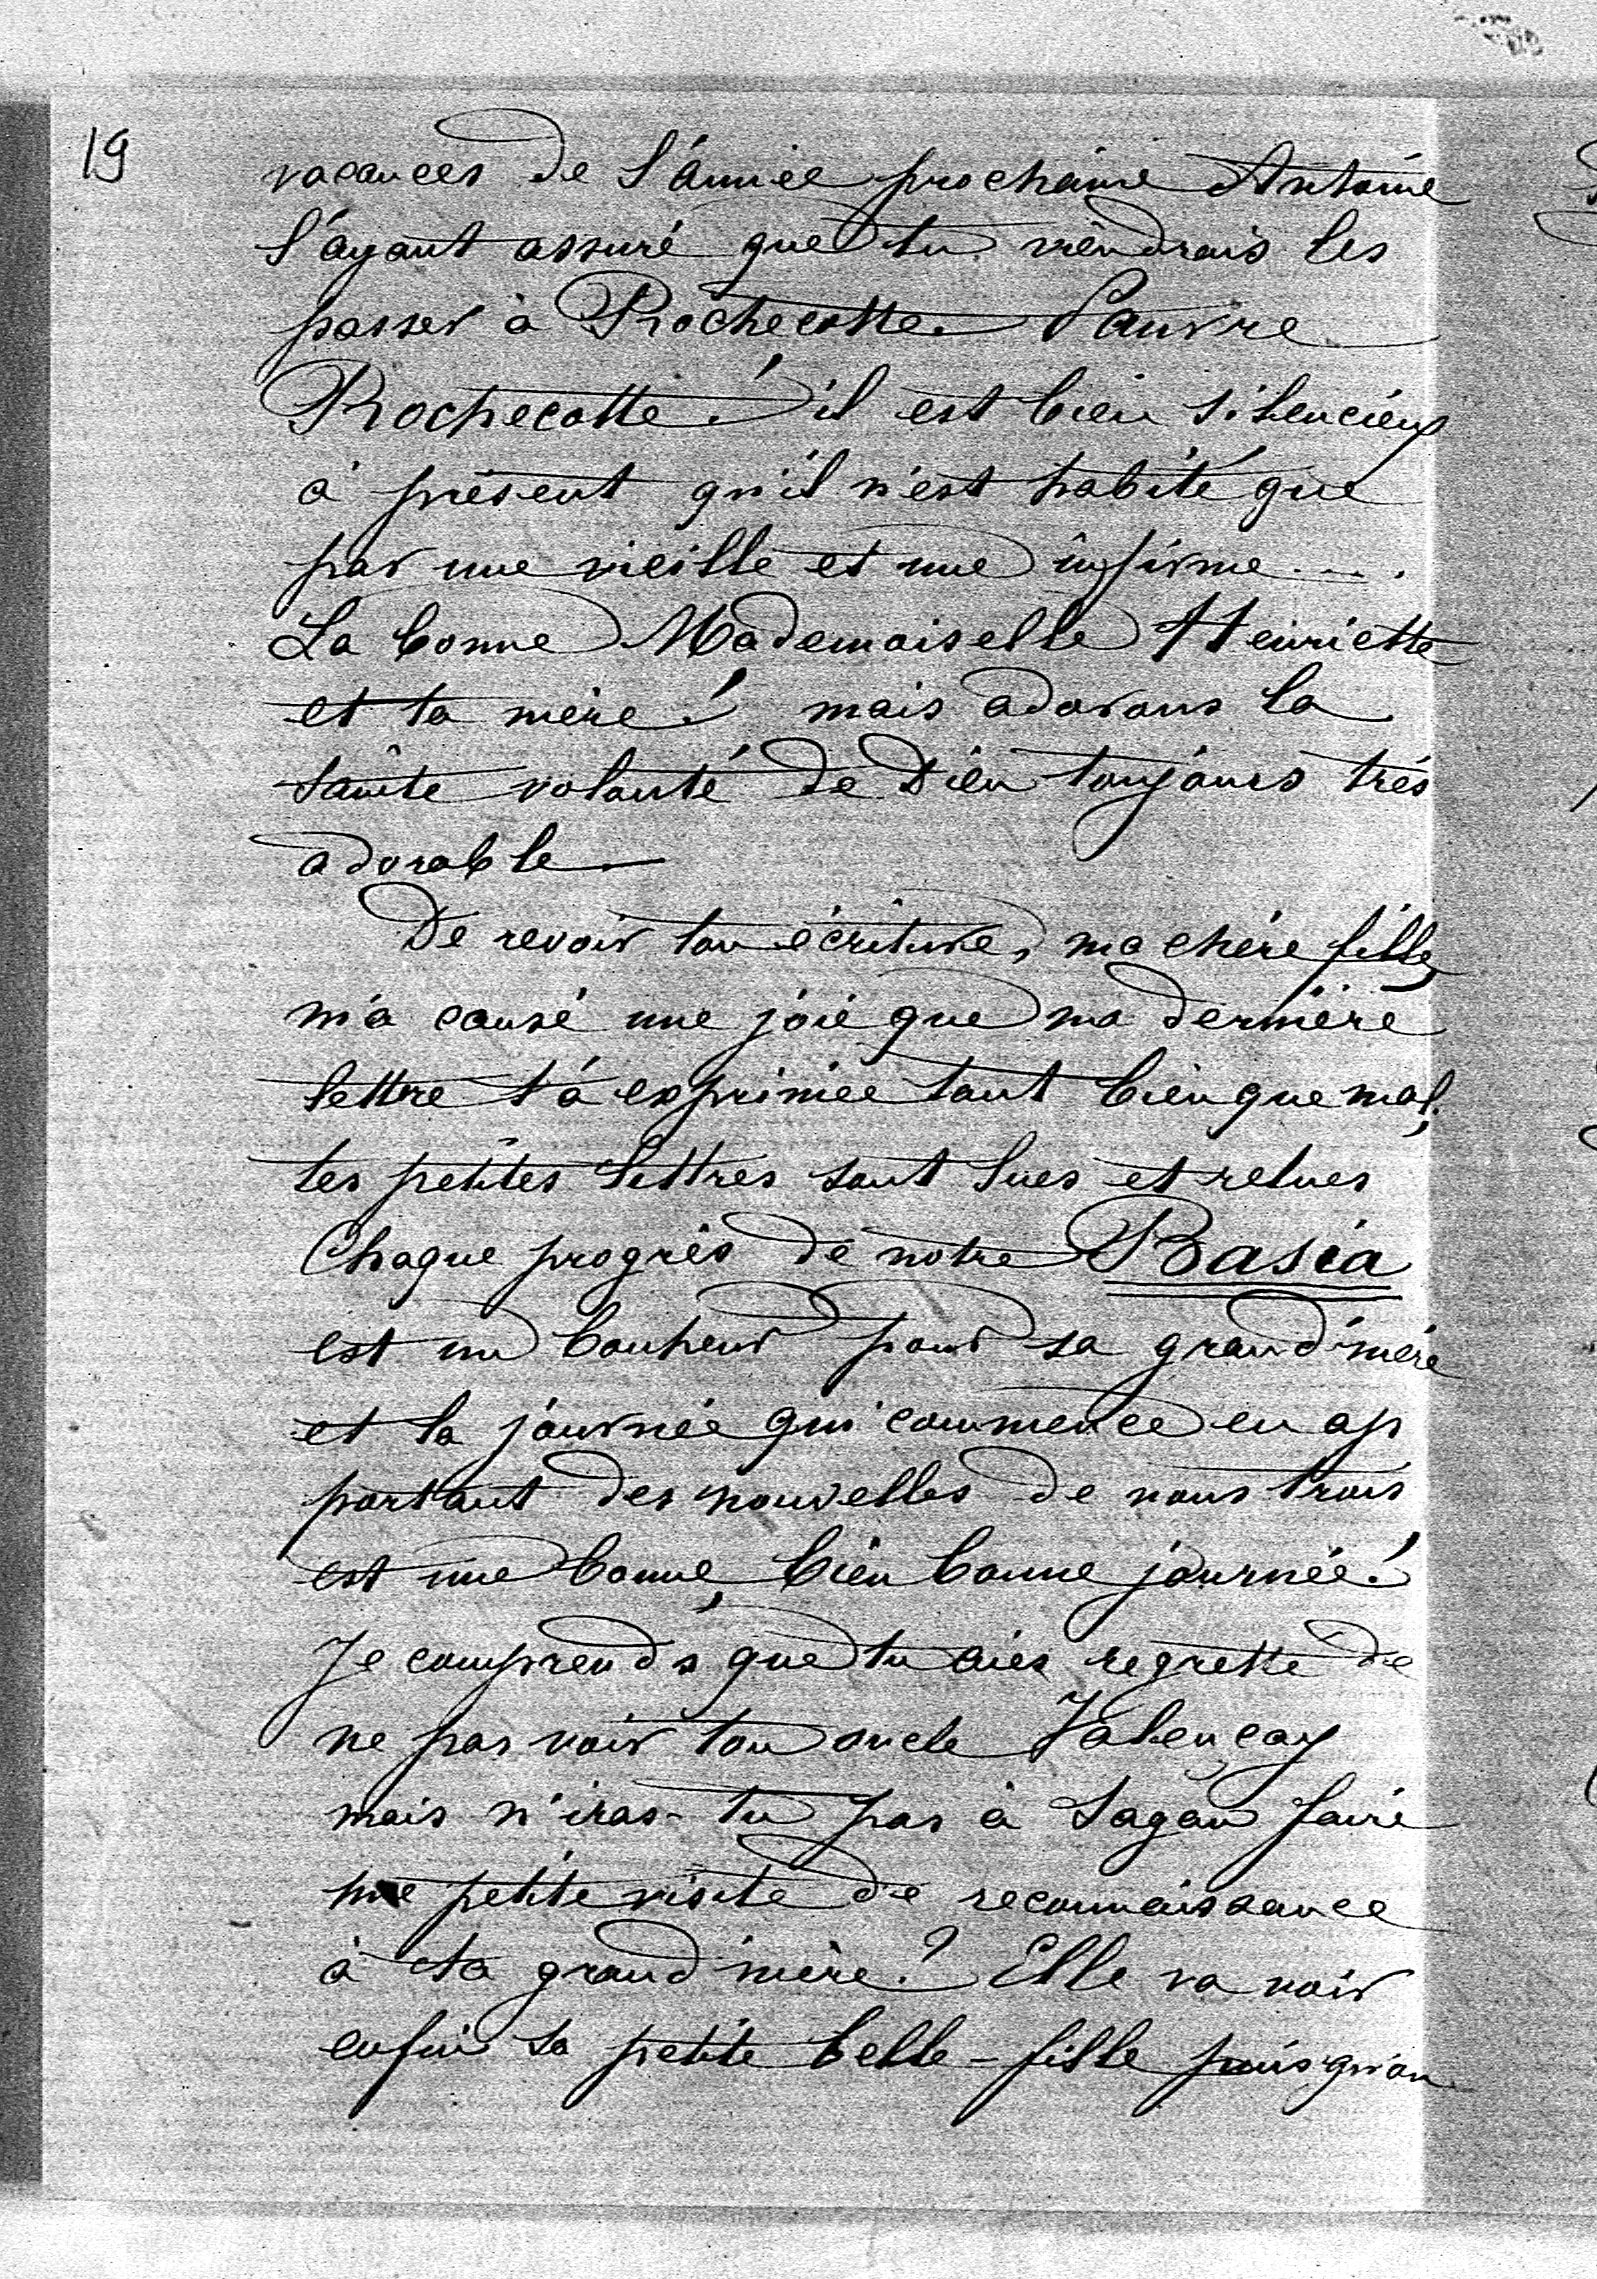 19
vacances de l'année prochaine Antoine
l'ayant assuré que tu viendrais les
passer à Rochecotte. Pauvre
Rochecotte! il est bien silencieux
à présent qu'il n'est habité que
par une vieille et une infirme....
La bonne Mademoiselle Henriette
et ta mère! mais adorons la
sainte volonté de Dieu toujours très
adorable
De revoir ton écriture, ma chère fille,
m'a causé une joie que ma dernière
lettre t'a exprimée tant bien que mal.
tes petites lettres sont lues et relues
Chaque progrès de notre Basia
est un bonheur pour sa grand'mère
et la journée qui commence en ap
portant des nouvelles de vous trois
est une bonne, bien bonne journée!
Je comprends que tu aies regretté de
ne pas voir ton oncle Valençay
mais n'iras-tu pas à Sagan faire
une petite visite de reconnaissance
à ta grand'mère? Elle va voir
enfin sa petite belle-fille puisqu'on